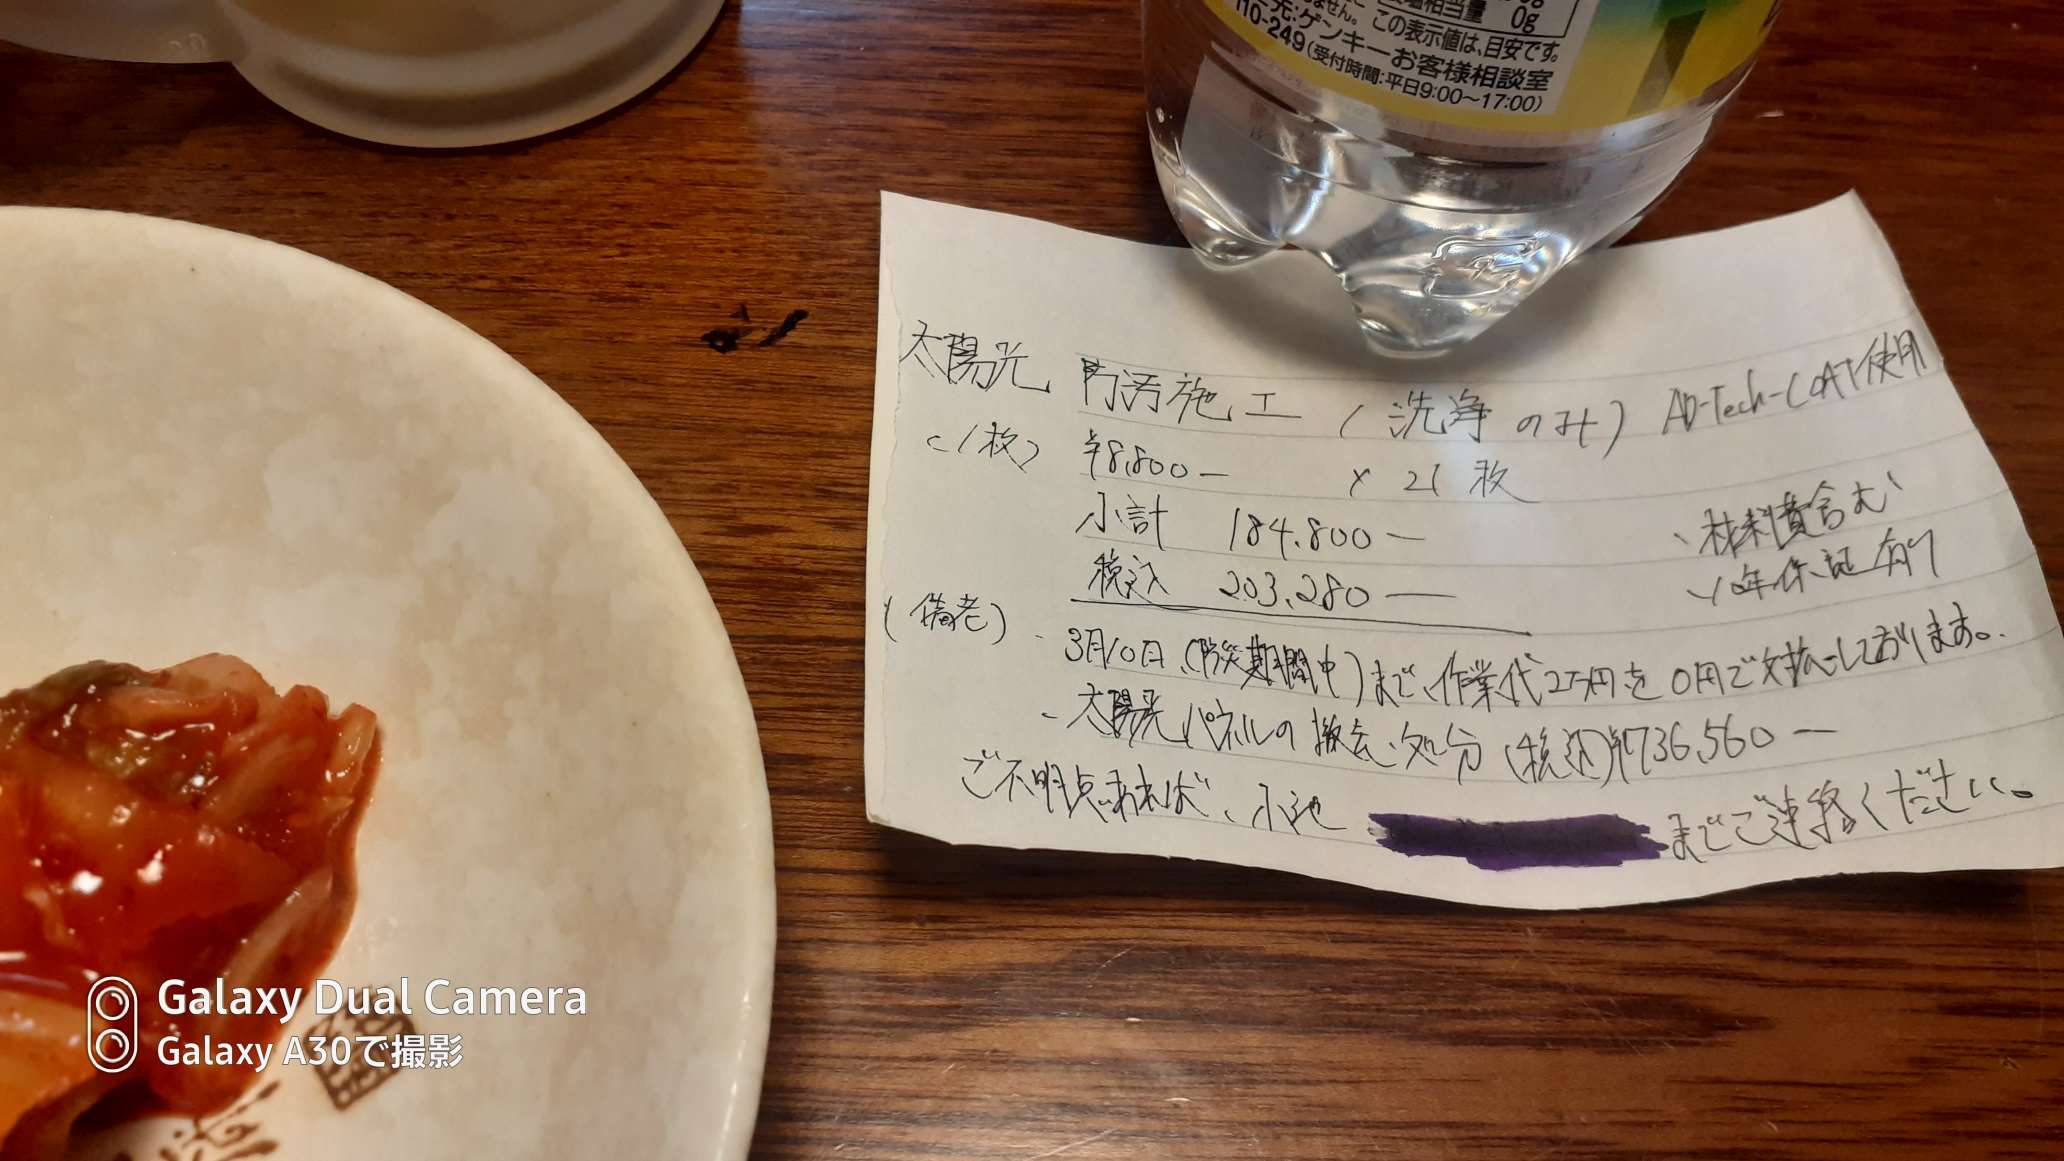 相当量 0g
ません。この表示値は、目安です。
先:ゲンキーお客様相談室
110-249(受付時間:平日9:00〜17:00)
太陽光 防汚施工 (洗浄のみ) AD-Tech-COAT使用
(1枚) ¥8,800ー × 21枚
小計 184.800ー 、材料費含む
税込 203.280ー 、10年保証有り
(備考)・3月10日、(防災期間中)まで、作業代2万円を0円で対応しております。
・太陽光パネルの撤去、処分(税込)¥736,560ー
ご不明点あれば、小池 までご連絡ください。
Galaxy Dual Camera
Galaxy A30で撮影